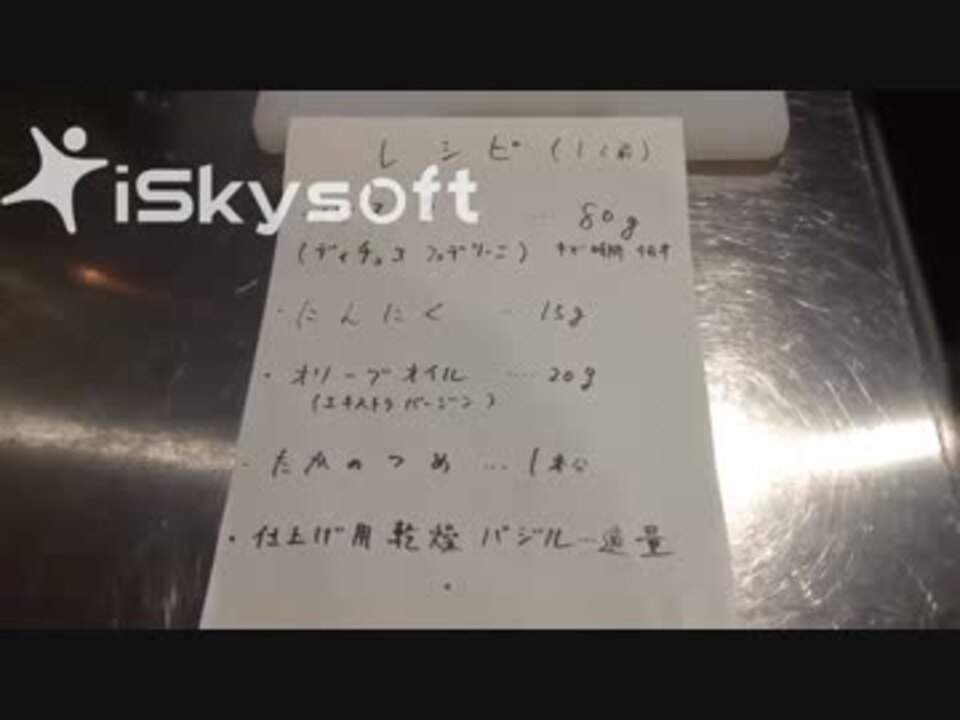 レシピ(1人前)
iSkysoft
… 80g
(ディチェコ フェデリーニ) ゆで時間
・にんにく … 15g
・オリーブオイル …… 20g
(エキストラバージン)
・たかのつめ … 1本分
・仕上げ用乾燥バジル…適量
・